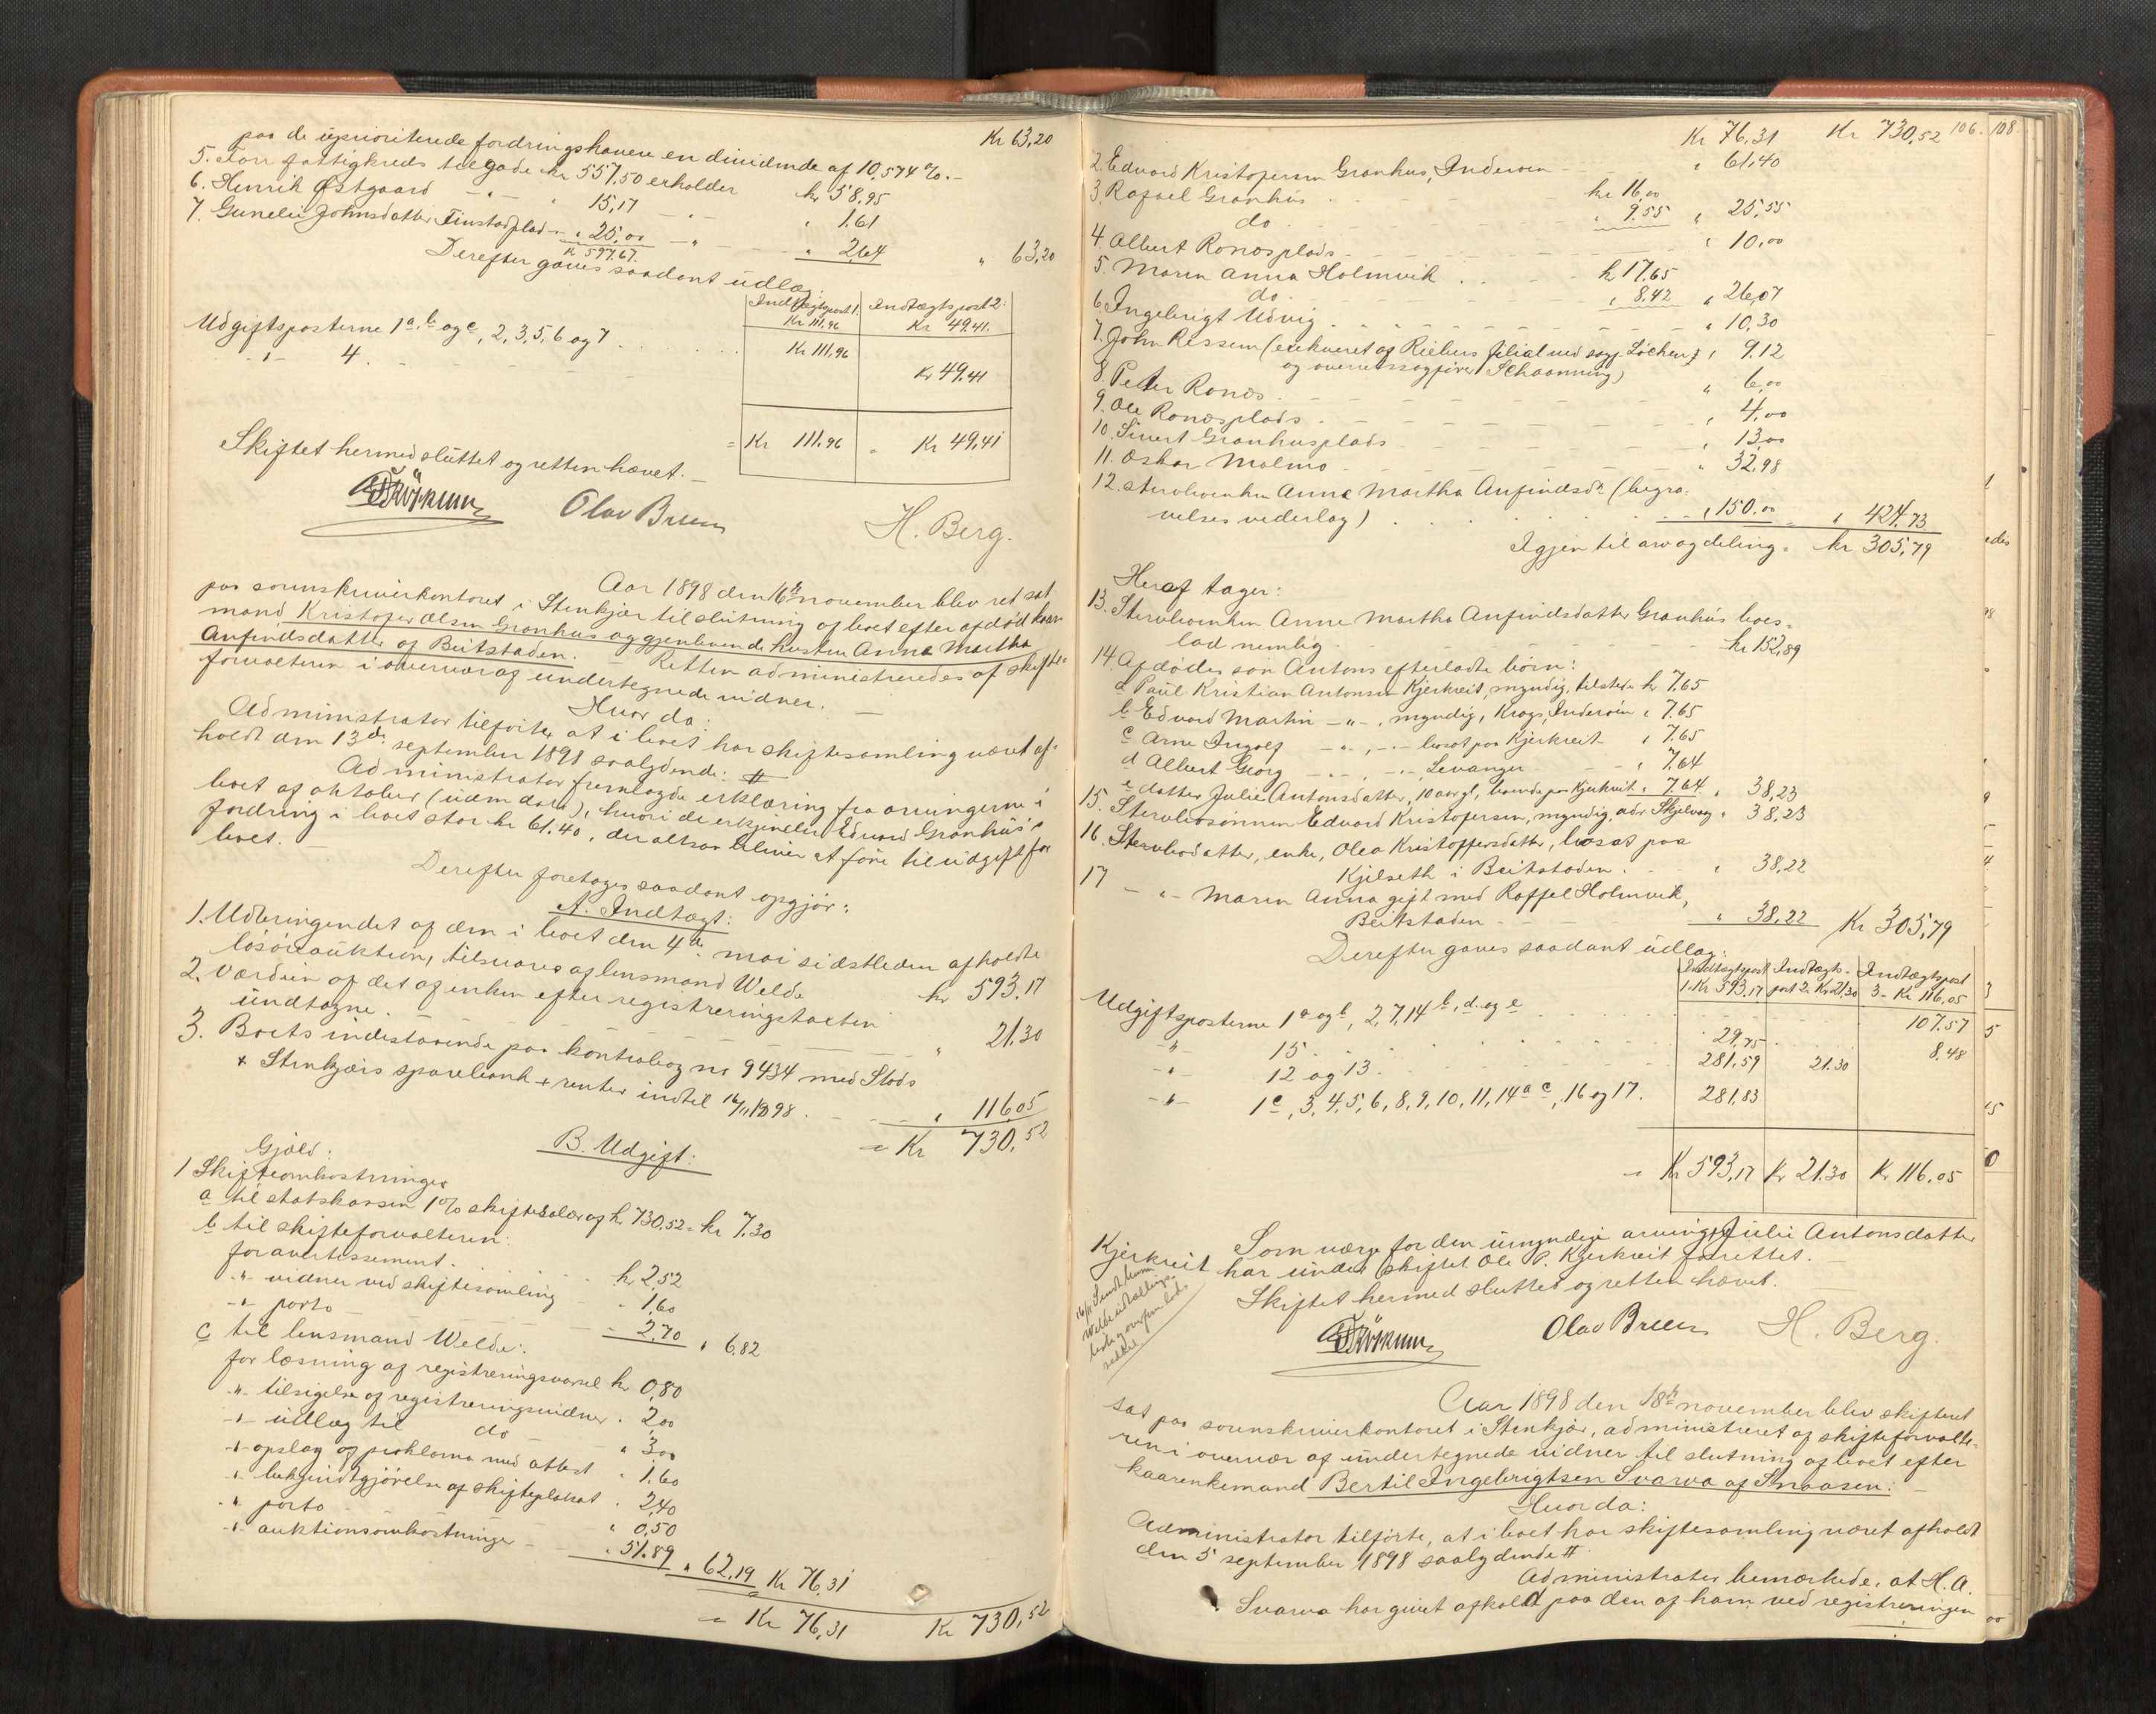 Kr 63,20
paa de uprioriterede fordringshavere en dividende af 10,574 %.-
5. Torr fattigkreds tilgode kr 557,50 erholder kr 58,95
6. Henrik Østgaard -"- " 15,17 -"- " 1.61
7. Gunelie Johnsdatter Finstadplad - " 25,00 -"- " 2,64 " 63,20
Kr 597.67.
Derefter gaves saadant udlæg:
Indtægtspost 1. Indtægtspost 2:
Kr 111,96 Kr 49.41.
Udgiftsposterne 1 a, b og c, 2, 3, 5, 6 og 7 . . . Kr 111,96
-"- 4. Kr 49,41
= Kr 111.96 = Kr 49,41
Skiftet hermed sluttet og retten hævet. -
Olav Breen
H. Berg.
Aar 1898 den 16de november blev ret sat
paa sorenskriverkontoret i Stenkjær til slutning af boet efter afdød kaar-
mand Kristofer Olsen Granhus og gjenlevende hustru Anna Martha
Anfindsdatter af Beitstaden. - Retten administreredes af skifte-
forvalteren i overvær af undertegnede vidner. -
Hvor da:
Administrator tilførte, at i boet har skiftesamling været af-
holdt den 13de september 1898 saalydende: #
Administrator fremlagde erklæring fra arvingerne i
boet af oktober (uden dato), hvori de erkjender Edvard Granhus's
fordring i boet stor kr 61.40, der altsaa bliver at føre til udgift for
boet. -
Derefter foretages saadant opgjør:
A. Indtægt:
1. Udbringendet af den i boet den 4de mai sidstleden afholdte
løsøreauktion, tilsvares af lensmand Welde kr 593,17
2. Værdien af det af enken efter registreringstaxten
undtagne. - - - - " 21.30
3. Boets indestaaende paa kontrabog no 9434 med Stods
& Stenkjærs sparebank + renter indtil 16/11 1898. - - " 116,05
= Kr 730,52
B. Udgift:
Gjæld:
1 Skifteomkostninger
a til statskassen 1% skiftesalær af kr 730,52 = kr 7.30
b til skifteforvalteren:
for avertissement. . . kr 2,52
-"- vidner ved skiftesamling - " 1,60
-"- porto - - - " 2,70 " 6,82
c til lensmand Welde:
for læsning af registreringsvarsel kr 0,80
-"- tilsigelse af registreringsvidner . " 2,00
-"- udlæg til do " 3,00
-"- opslag af proklama med attest " 1.60
-"- bekjendtgjørelse af skifteplakat . " 2,40
-"- porto - " 0,50
-"- auktionsomkostninger - " 51.89 " 62,19 Kr 76,31
= Kr 76,31 Kr 730,52
Kr 76,31 Kr 730,52 106. 108.
2. Edvard Kristofersen Granhus, Inderøen - - " 61,40
3. Rafael Granhus . . . kr 16,00
do - " 9.55 " 25,55
4. Albert Ronæsplads - - - " 10,00
5. Maren Anna Holmvik . . . kr 17.65
do. " 8,42 " 26,07
6. Ingebrigt Udvig - - - " 10,30
7. John Rissem (exekveret af Riebers filial ved sagf. Løchen " 9.12
og overretssagfører Schaanning)
8. Peter Ronæs - - - " 6,00
9. Ole Ronæsplads - - - " 4,00
10. Sivert Granhusplads - - " 13,00
11. Oskar Malmo - - - " 32,98
12. Stervboenken Anne Martha Anfindsdr (begra-
velsesvederlag) . . . " 150.00 " 424,73
Igjen til arv og deling = kr 305,79
Heraf tager:
13. Stervboenken Anne Martha Anfindsdatter Granhus boes-
lod nemlig - - - kr 152,89
14. Afdødes søn Antons efterladte børn:
a Paul Kristian Antonsen Kjerkreit, myndig, tilstede kr 7,65
b Edvard Martin -"-, myndig, Krogs, Inderøen " 7.65
c Arne Ingolf -"-, -"- bosat paa Kjerkreit " 7.65
d Albert Georg -"-, -"-, Levanger - " 7,64
e datter Julie Antonsdatter, 10 aar gl, boende paa Kjerkreit " 7.64 " 38,23
15. Stervbosønnen Edvard Kristofersen, myndig, adr Skjelvag " 38,23
16. Stervbodatter, enke, Olea Kristoffersdatter, bosat paa
Kjelseth i Beitstaden. - " 38,22
17 -"- Maren Anna gift med Raffel Holmvik,
Beitstaden - - " 38,22 Kr 305,79
Derefter gaves saadant udlæg:
Indtægtspost Indtægts- Indtægtspost
1. Kr 593,17 post 2. Kr 21,30 3 - Kr 116,05
Udgiftsposterne 1 a og b, 2, 7, 14 b, d og e . . . 107.57
-"- 15 . . . 29,75 . . . 8,48
-"- 12 og 13 . . . 281,59 21.30
-"- 1 c, 3, 4, 5, 6, 8, 9, 10, 11, 14 a c, 16 og 17. 281,83
= Kr 593,17 Kr 21.30 Kr 116,05
Som værge for den umyndige arving Julie Antonsdatter
Kjerkreit har under skiftet Ole P. Kjerkreit fœrettet. -
Skiftet hermed sluttet og retten hævet.
Olav Breen H. Berg.
Aar 1898 den 18de november blev skifteret
sat paa sorenskriverkontoret i Stenkjær, administreret af skifteforvalte-
ren i overvær af undertegnede vidner til slutning af boet efter
kaarenkemand Bertil Ingebrigtsen Svarva af Snaasen: -
Hvor da:
Administrator tilførte, at i boet har skiftesamling været afholdt
den 5 september 1898 saalydende #
Administrator bemærkede, at H. A.
Svarva har givet afkald paa den af ham ved registreringen